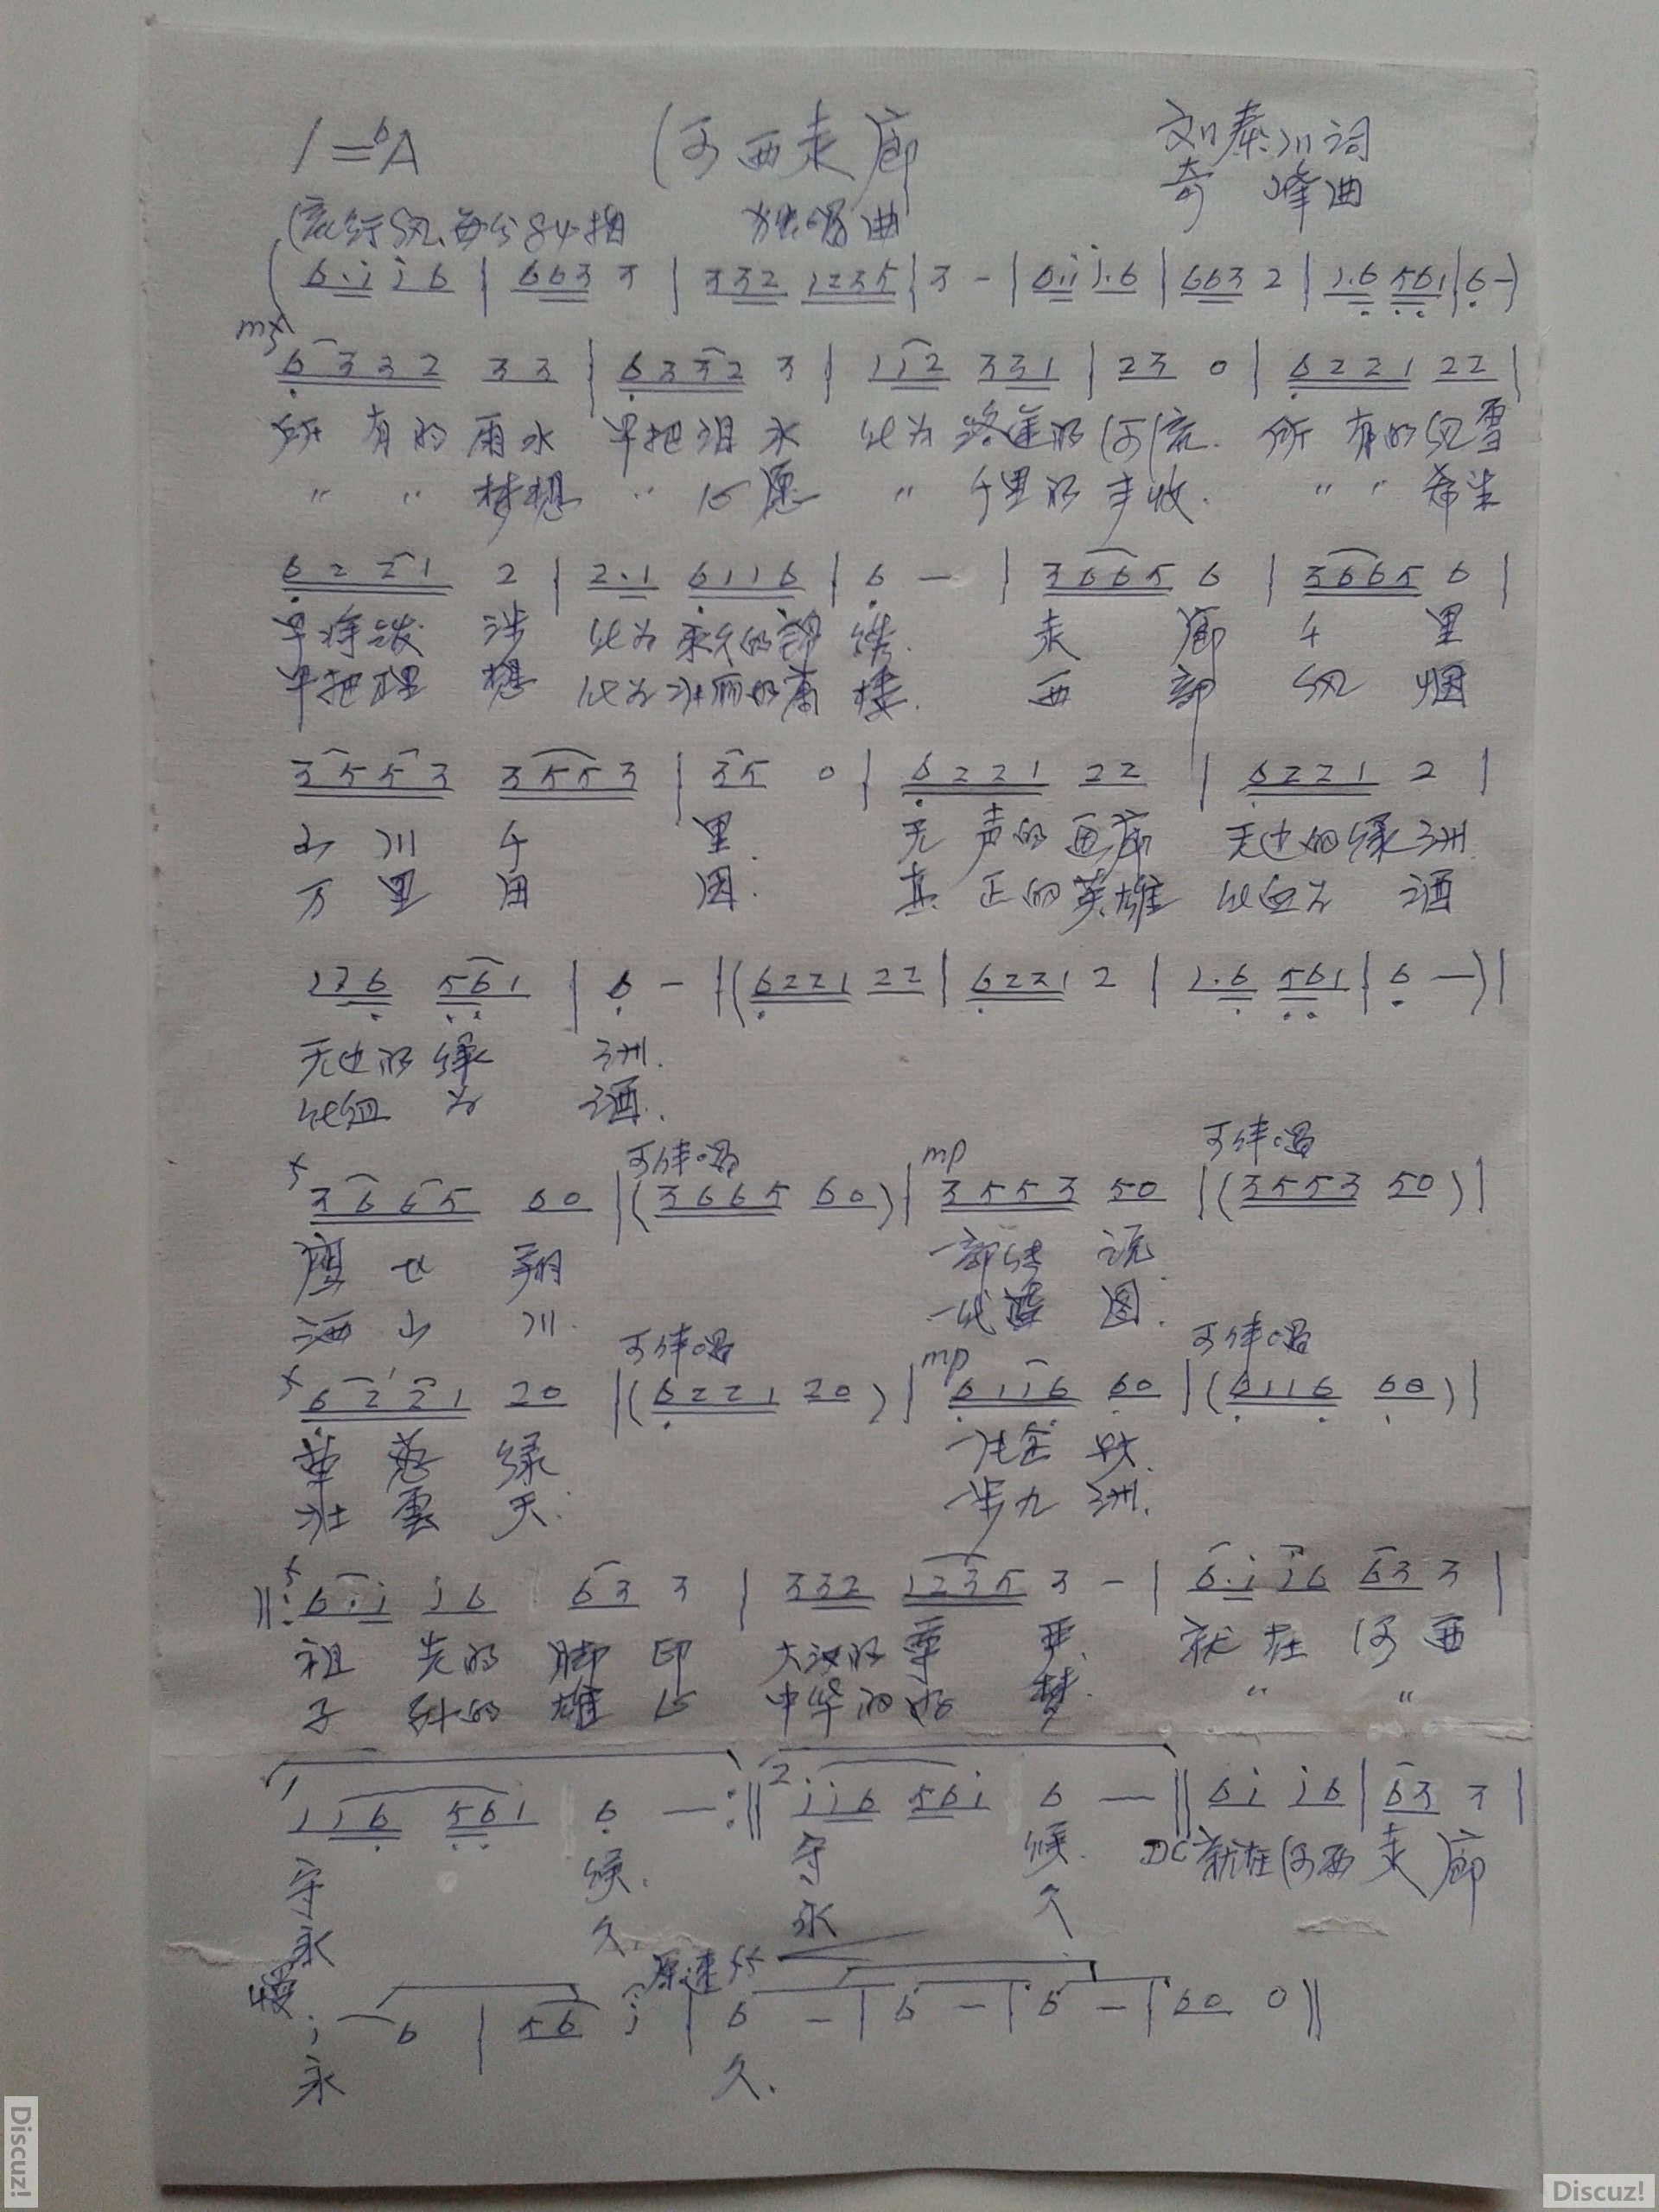 1=♭A 河西走廊 刘泰川词
奇峰曲
(流行风、每分84拍 独唱曲
(6·i i6 | 663 3 | 332 1235 | 3 - | 6·i i·6 | 663 2 | 1·6 561 | 6 -)
mf
6332 33 | 6332 3 | 112 331 | 23 0 | 6221 22 |
所有的雨水 早把泪水 化为路途的河流. 所有的风雪
〃 〃 梦想 〃 心愿 〃 千里的丰收. 〃 〃 希望
6221 2 | 2·1 6116 | 6 - | 3665 6 | 3665 6 |
早将跋涉 化为永久的 走廊千里
早把理想 化为壮丽的高楼. 西部风烟
3553 3553 | 35 0 | 6221 22 | 6221 2 |
山川千里. 无声的画廊 无边的绿洲
万里田园. 真正的英雄 化血为酒
126 561 | 6 - |(6221 22 | 6221 2 | 1·6 561 | 6 -)|
无边的绿洲.
化血为酒.
f 可伴唱 mp 可伴唱
3665 60 |(3665 60)| 3553 50 |(3553 50)|
鹰飞翔 一部传说.
洒山川. 一代蓝图.
f 可伴唱 mp 可伴唱
6221 20 |(6221 20)| 6116 60 |(6116 60)|
草葱绿
壮云天. 一步九洲.
f
‖: 6·i i6 63 3 | 332 1235 3 - | 6·i i6 63 3 |
祖先的脚印 大汉的 就在河西
子孙的雄心 中华的好梦. 〃 〃
1 116 561 6 - :‖ 2 ii6 56i 6 - ‖ 6i i6 | 63 3 |
守候. 守候. DC 就在河西走廊
永久. 永久
慢 原速 ff
i 6 | 56 i | 6 - | 6 - | 6 - | 60 0 ‖
永久.
Discuz!
Discuz!